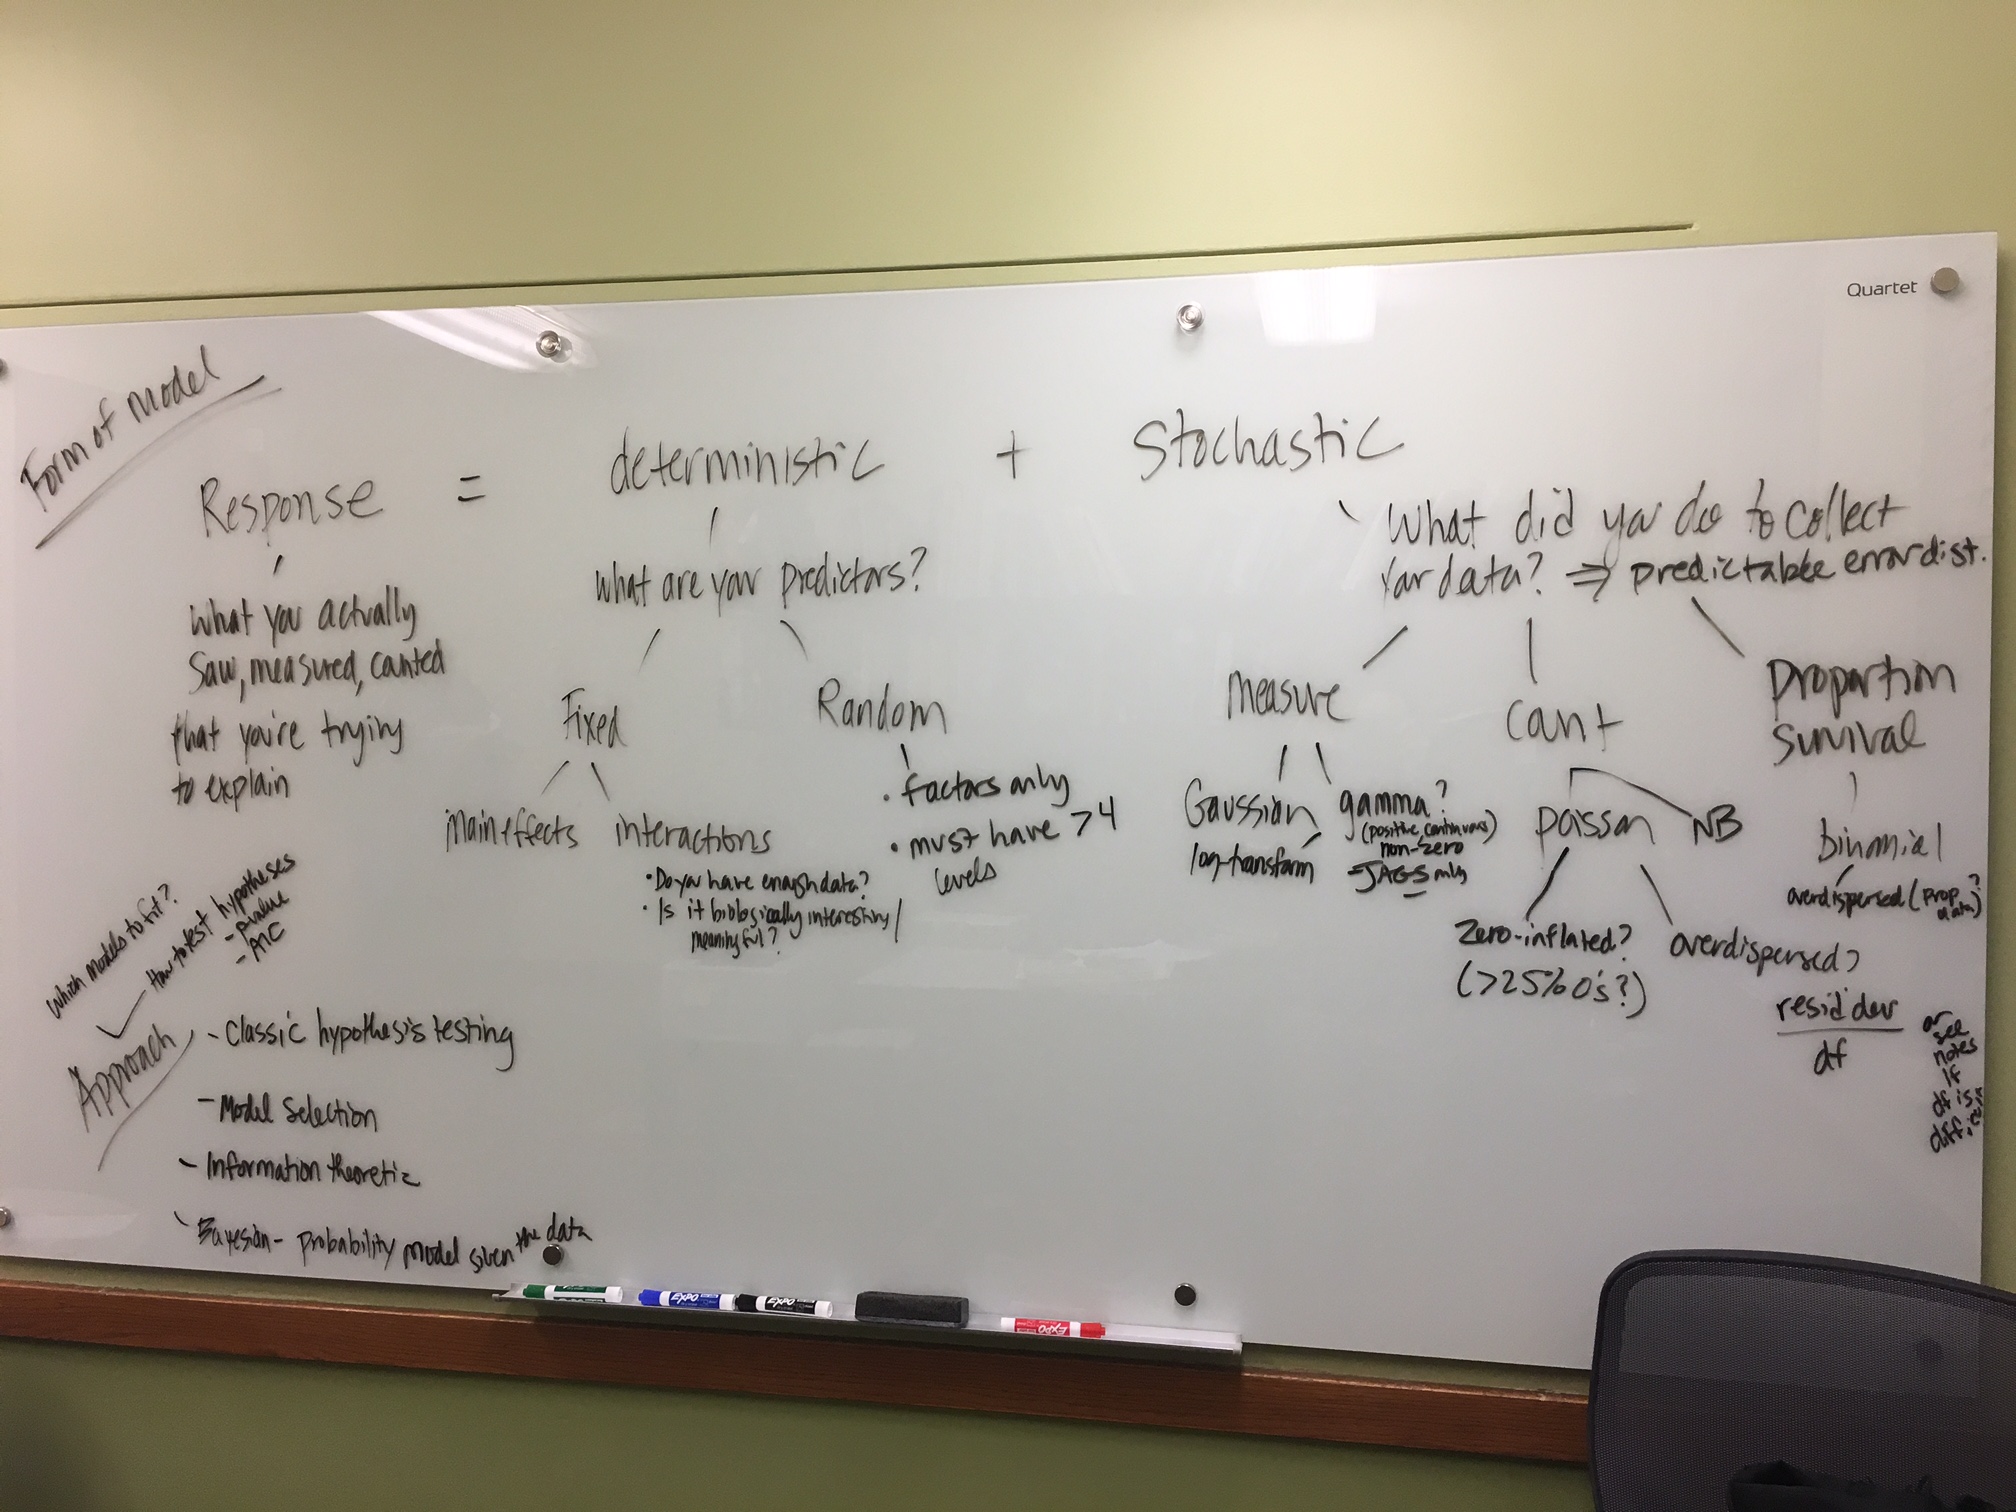 Quartet
Form of Model
Response = deterministic + Stochastic
What you actually
saw, measured, counted
that you're trying
to explain
What are your predictors?
Fixed
Random
Main effects
interactions
• Do you have enough data?
• Is it biologically interesting/
meaningful?
• factors only
• must have >4
levels
What did you do to collect
Your data? ⇒ predictable error dist.
Measure
Count
Proportion
survival
Gaussian
log-transform
gamma?
(positive, continuous)
non-zero
- JAGS only
poisson
NB
binomial
overdispersed (prop
data)?
Zero-inflated?
(>25% 0's?)
overdispersed?
resid dev
df
or
see
notes
if
df is
Which models to fit?
How to test hypotheses
- p-value
- AIC
Approach
- Classic hypothesis testing
- Model Selection
- Information theoretic
- Bayesian - probability model given the data
EXPO
EXPO
EXPO